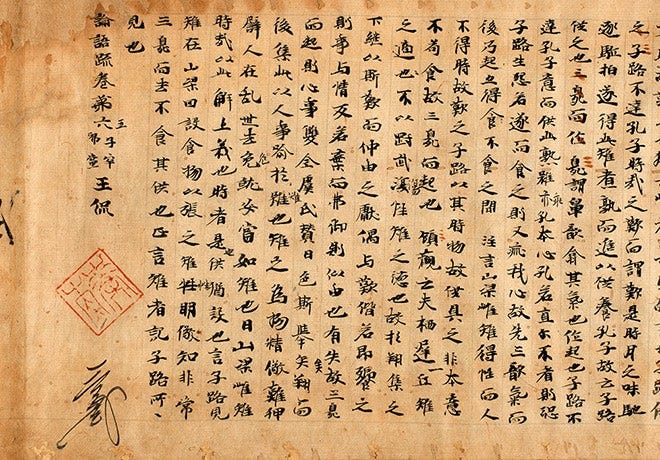 之子路不達孔子時哉之歎而謂歎是時月之味馳
逐駈拍遂得此雉者熟而進以供養孔子故云子路
供之也三臭而作臭謂鼻歆翕其氣也作起也子路不
達孔子意而供此熟雖孔本心孔若直尒不者則恐
子路生怨若遂而食之則又乖我心故先三歎氣而
後乃起並得食不食之間 注言山梁雌雉得性而人
不得時故歎之子路以其時物故供具之非本意
不苟食故三臭而起也 顧歡云夫栖遲一丘雉
之適也不以武傷性雉之德也故於翔集之
下継以斯歎而仲由之獻偶与歎偕若即饗之
則事与情反若棄而弗御則似由也有失故三臭
而起則心事雙全虞氏賛曰色斯舉矣翔而
後集此以人事喻於雉也雉之為物精儆難狎
譬人在乱世去危就安當如雉也曰山梁雌雉
時哉以此解上義也時者是也供猶設也言子路見
雉在山梁因設食物以張之雉性明儆知非常
三臭而去不食其供也正言雌者記子路所
見也
論語疏卷第六 王侃